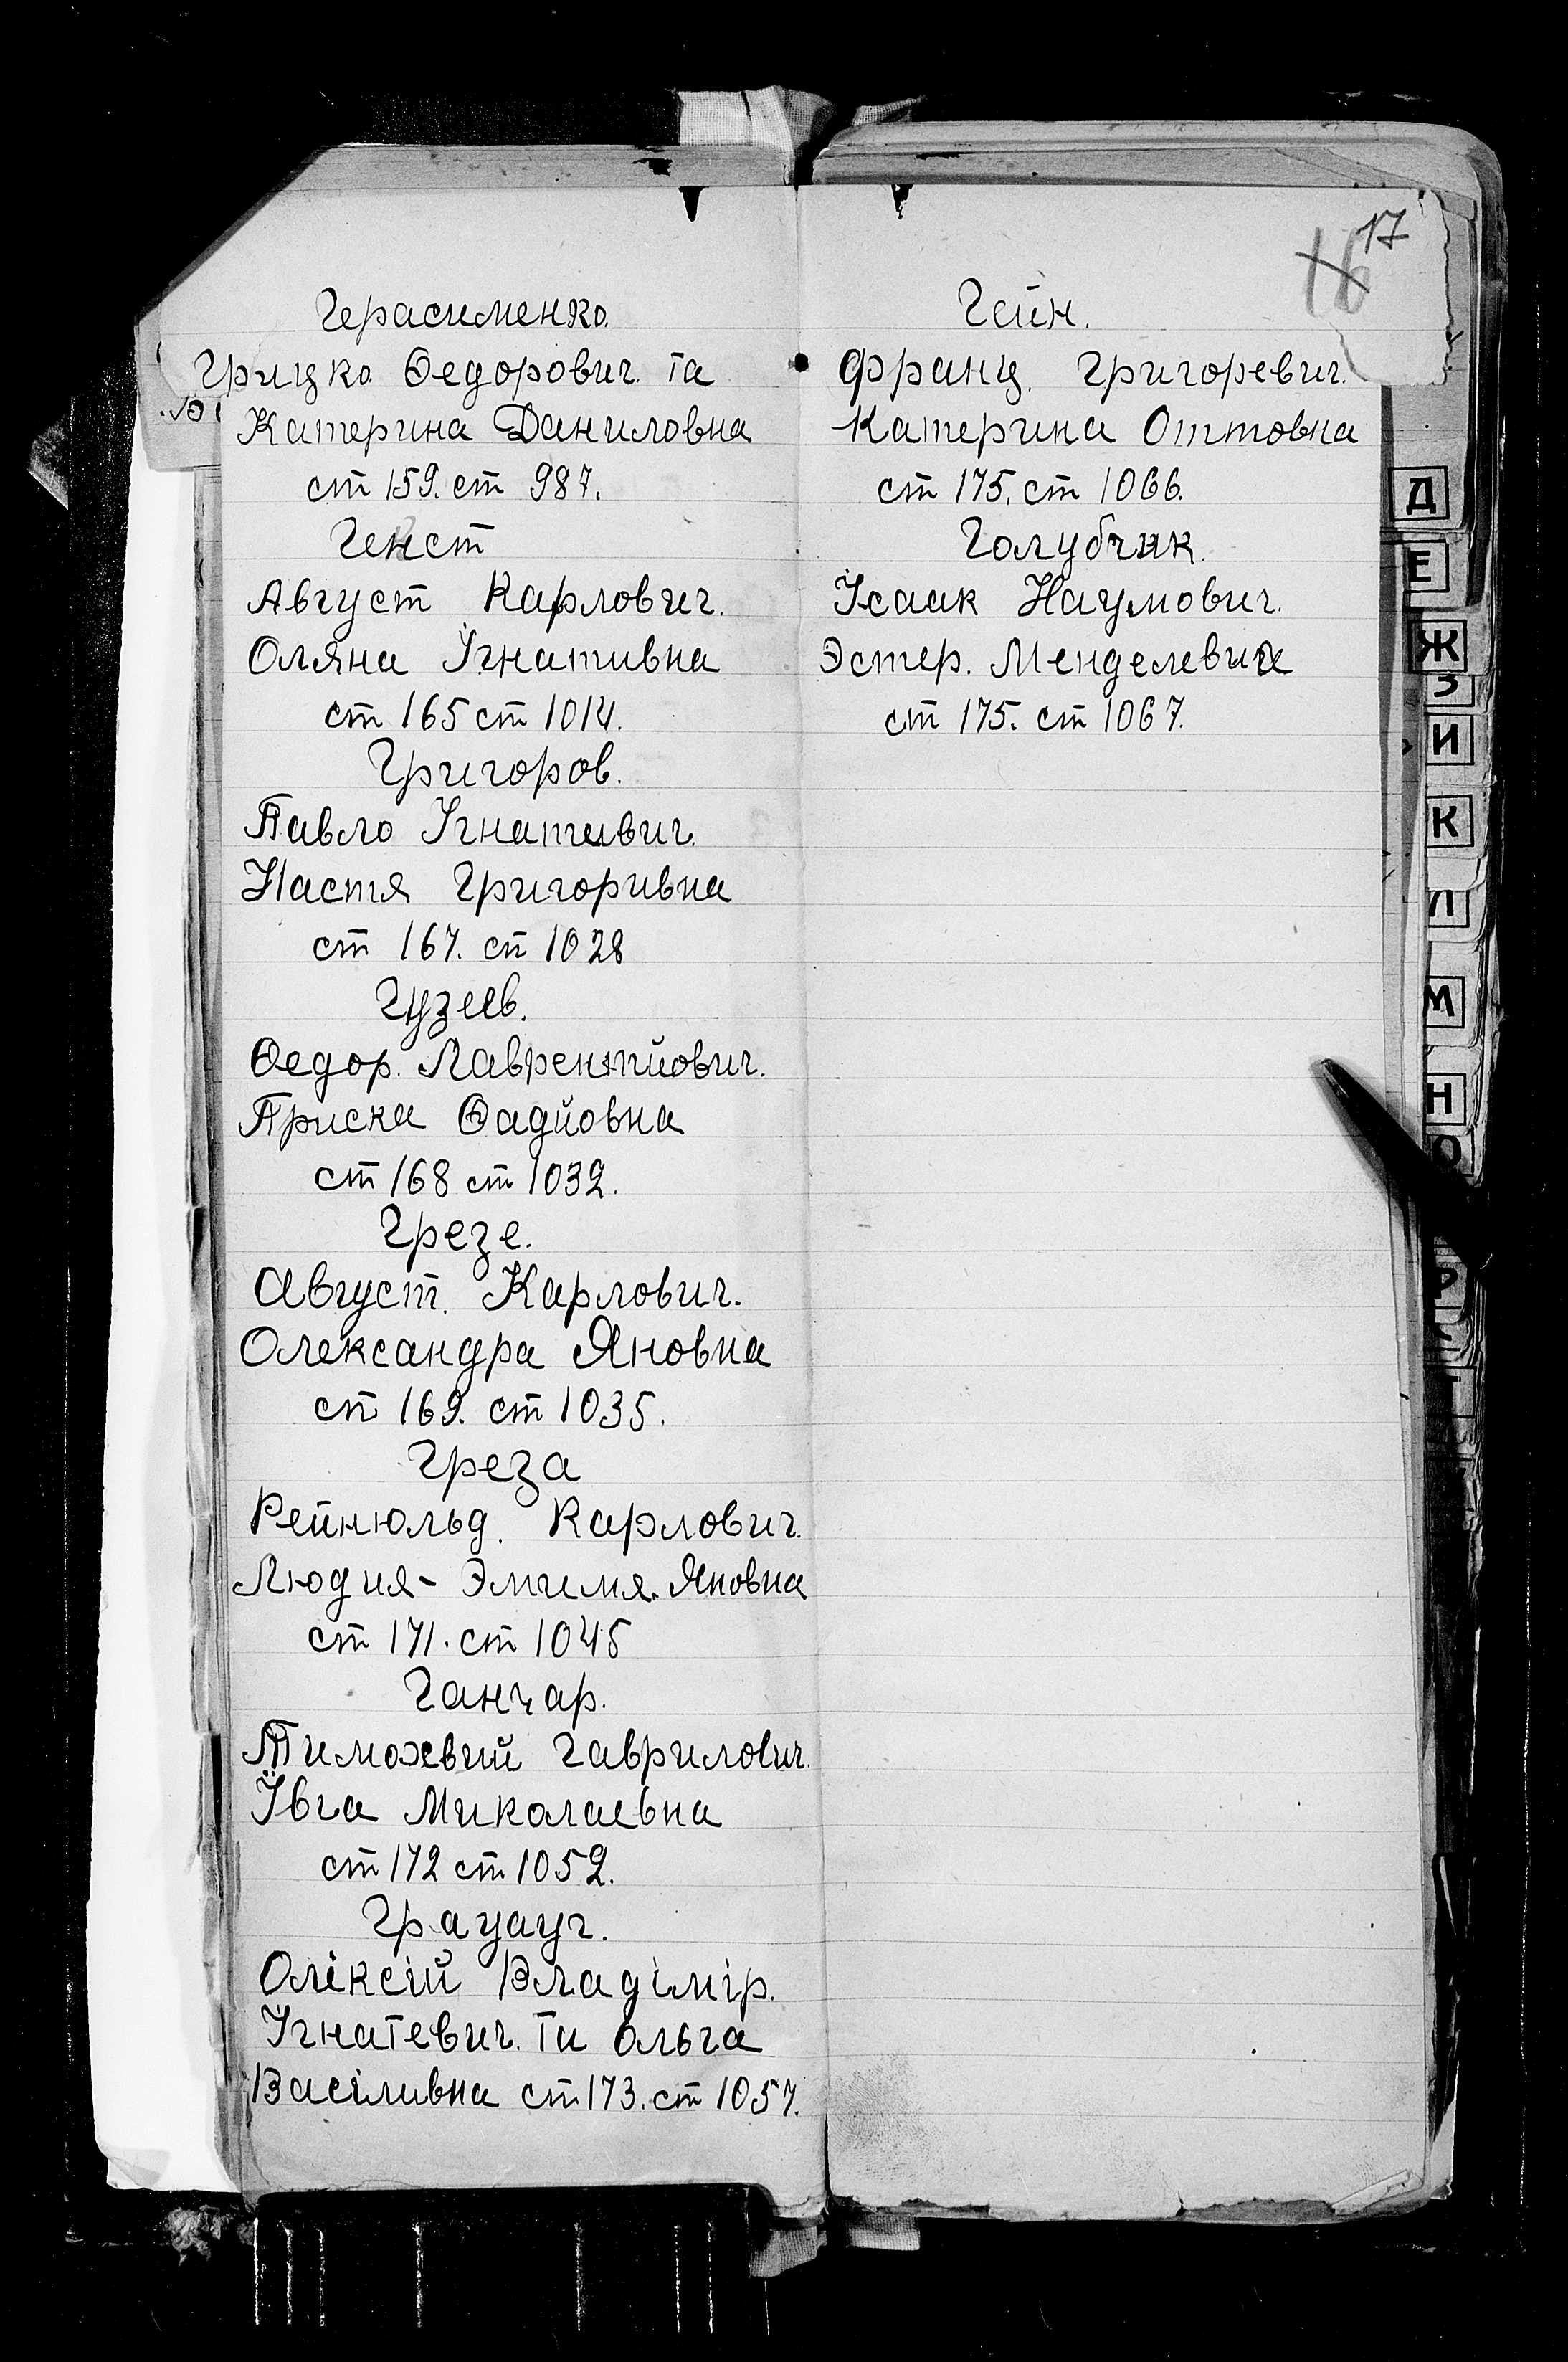 Герасименко.
Грицко Ѳедорович. та
Катерина Даниловна
ст 159. ст 987.
Генст
Август Карлович.
Оляна Ігнативна
ст 165 ст 1014.
Григоров.
Павло Ігнативич.
Настя Григоривна
ст 167. ст 1028
Гузеев.
Ѳедор. Лаврентийович.
Приска Ѳадйовна
ст 168 ст 1032.
Грезе.
Август. Карлович.
Олександра Яновна
ст 169. ст 1035.
Греза
Рейнюльд. Карлович.
Людия - Эмилия. Яновна
ст 171. ст 1045
Ганчар.
Тимохвий Гаврилович.
Ївга Миколаевна
ст 172 ст 1052.
Грауауг.
Олексій Владімір.
Ігнатевич. та Ольга
Василивна ст 173. ст 1057.
17
16
Гейн.
Франц. Григоревич.
Катерина Оттовна
ст 175. ст 1066.
Голубчик.
Ісаак Наумович.
Эстер. Менделевич
ст 175. ст 1067.
Д
Е
Ж
З
И
К
Л
М
Н
О
Р
С
Т